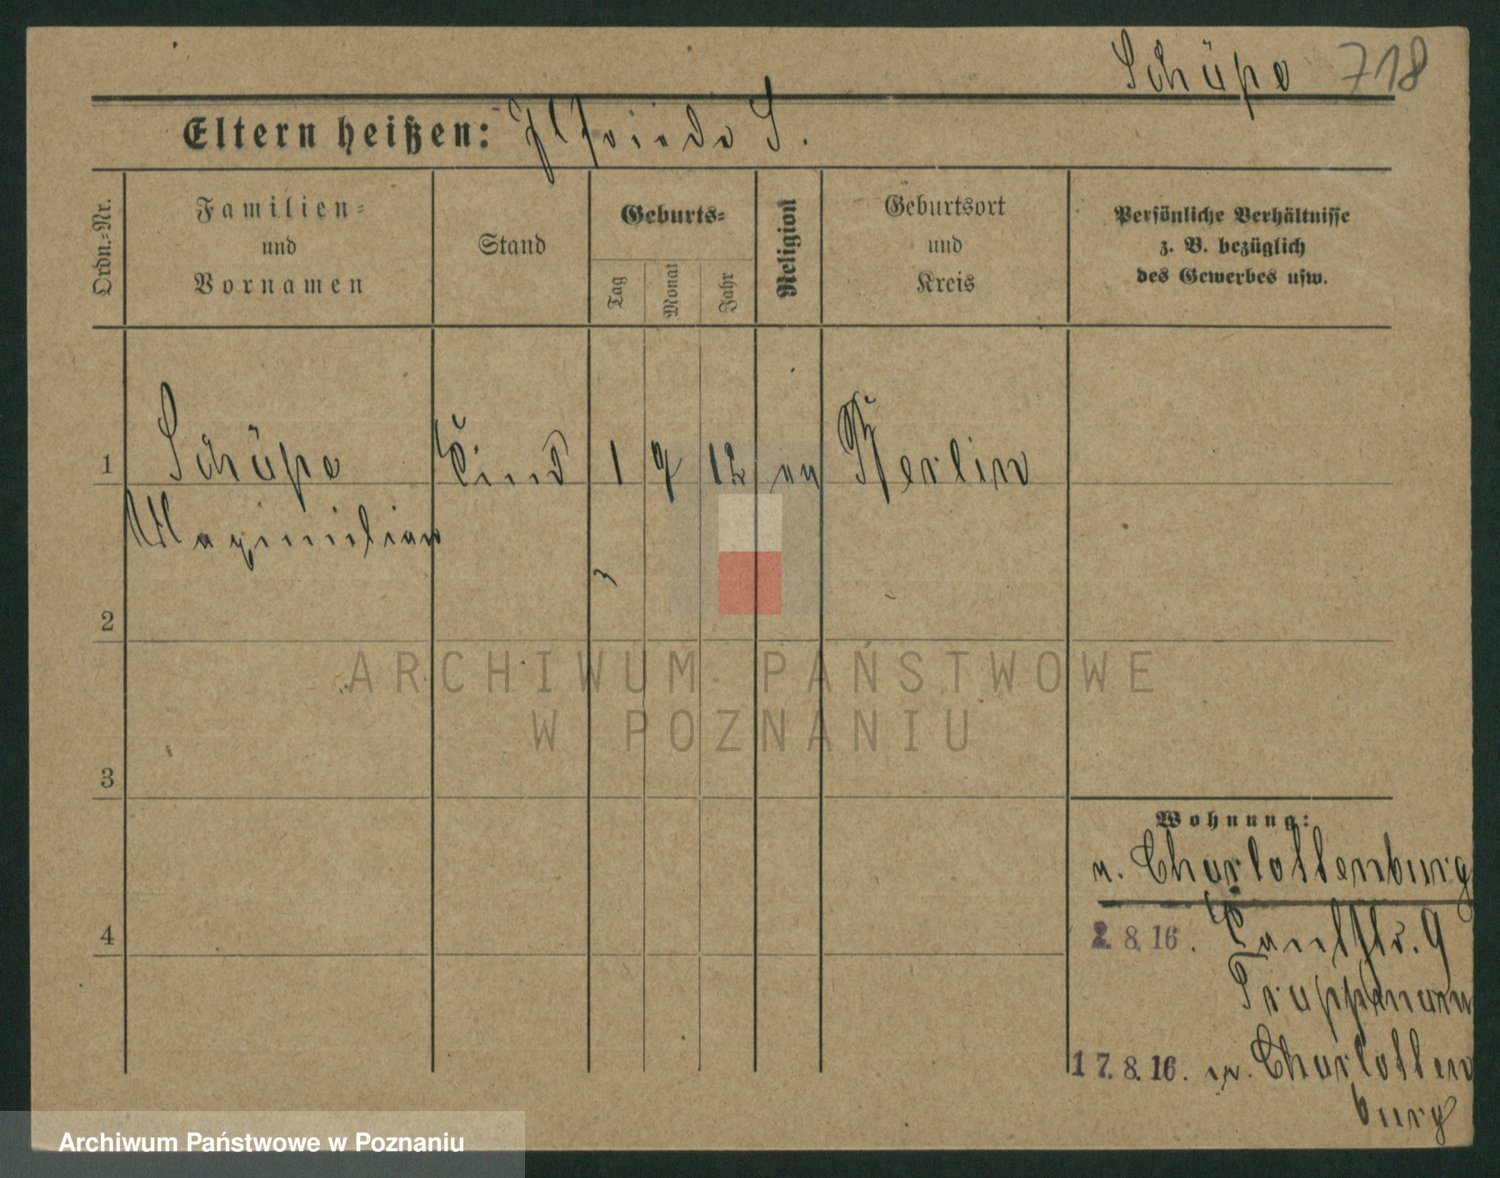 Schüpe 718
Eltern heißen: Elfriede S.
Ordn.-Nr.
Familien-
und
Vornamen
Stand
Geburts-
Tag
Monat
Jahr
Religion
Geburtsort
und
Kreis
Persönliche Verhältnisse
z. B. bezüglich
des Gewerbes usw.
1 Schüpe Kind 1 9 12 Berlin
Maximilian
2
3
4
Wohnung:
v. Charlottenburg
2.8.16. 9
Trappmann
17.8.16. n. Charlotten
burg
ARCHIWUM PAŃSTWOWE
W POZNANIU
Archiwum Państwowe w Poznaniu